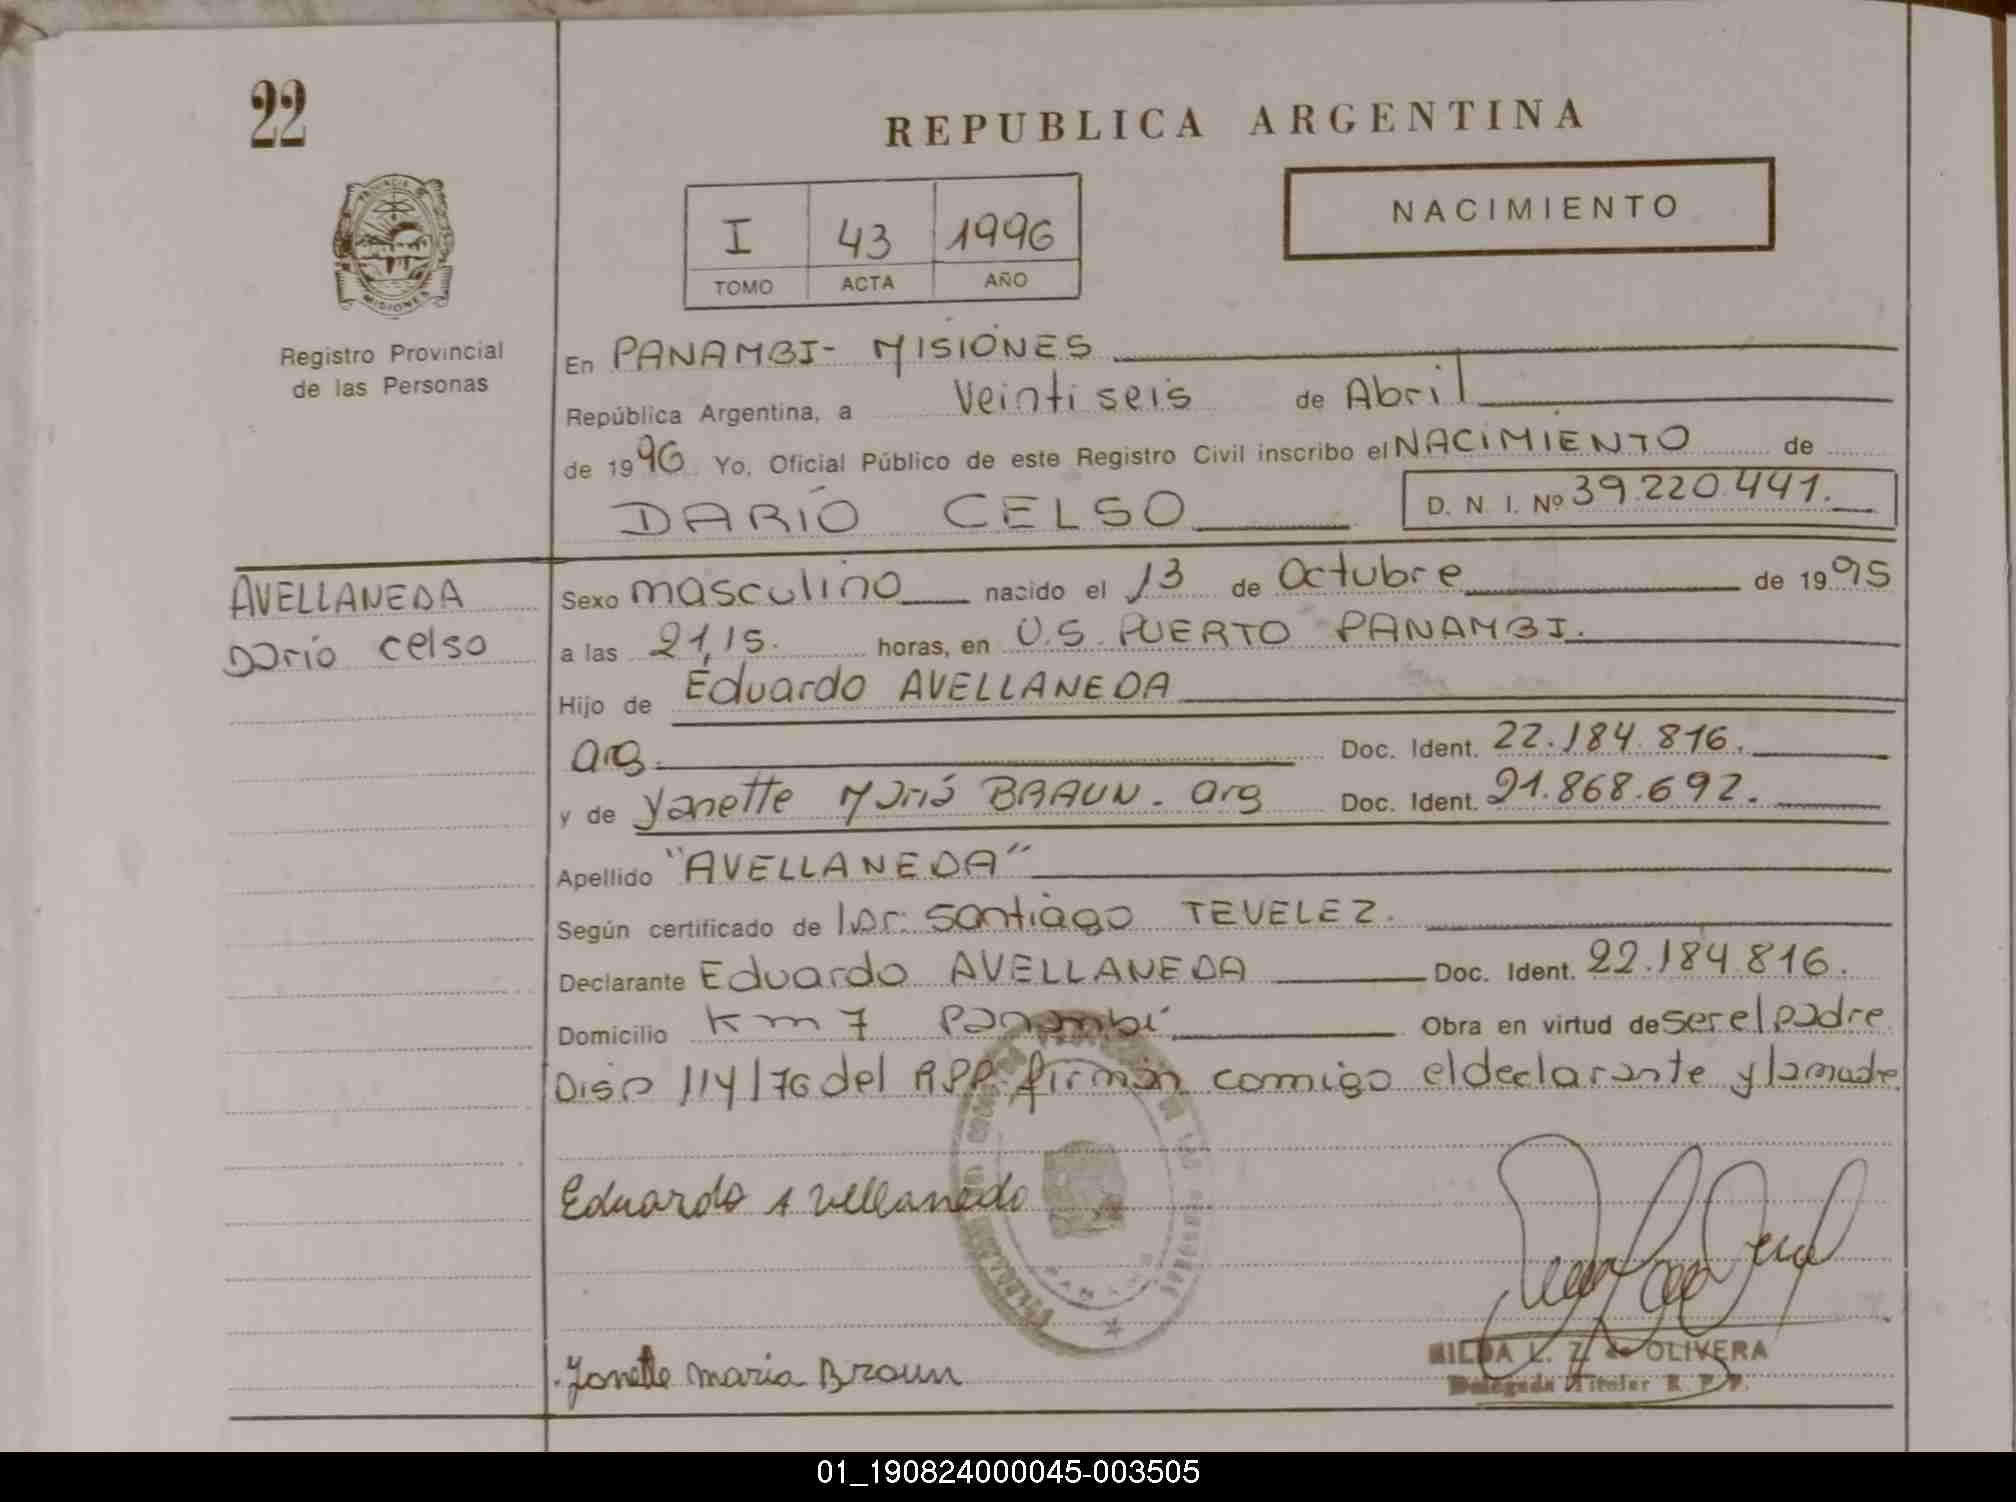 22
REPUBLICA ARGENTINA
NACIMIENTO
I 43 1996
TOMO ACTA AÑO
PROVINCIA DE
MISIONES
Registro Provincial
de las Personas
En PANAMBI- MISIONES
República Argentina, a Veintiseis de Abril
de 1996 Yo, Oficial Público de este Registro Civil inscribo el NACIMIENTO de
DARIO CELSO D. N. I. Nº 39.220.441.
AVELLANEDA
Dario Celso
Sexo masculino nacido el 13 de Octubre de 1995
a las 21,15. horas, en U.S. PUERTO PANAMBI.
Hijo de Eduardo AVELLANEDA
arg. Doc. Ident. 22.184.816.
y de Yanette Maria BRAUN. arg Doc. Ident. 21.868.692.
Apellido "AVELLANEDA"
Según certificado de Dr. Santiago TEVELEZ.
Declarante Eduardo AVELLANEDA Doc. Ident. 22.184.816.
Domicilio Km 7 Panambi Obra en virtud de ser el padre
Disp 114/76 del RPP. firman comigo el declarante y la madre
Eduardo Avellanedo
Yonette maria Broun
HILDA L. Z. de OLIVERA
Delegada Titular R. P. P.
01_190824000045-003505